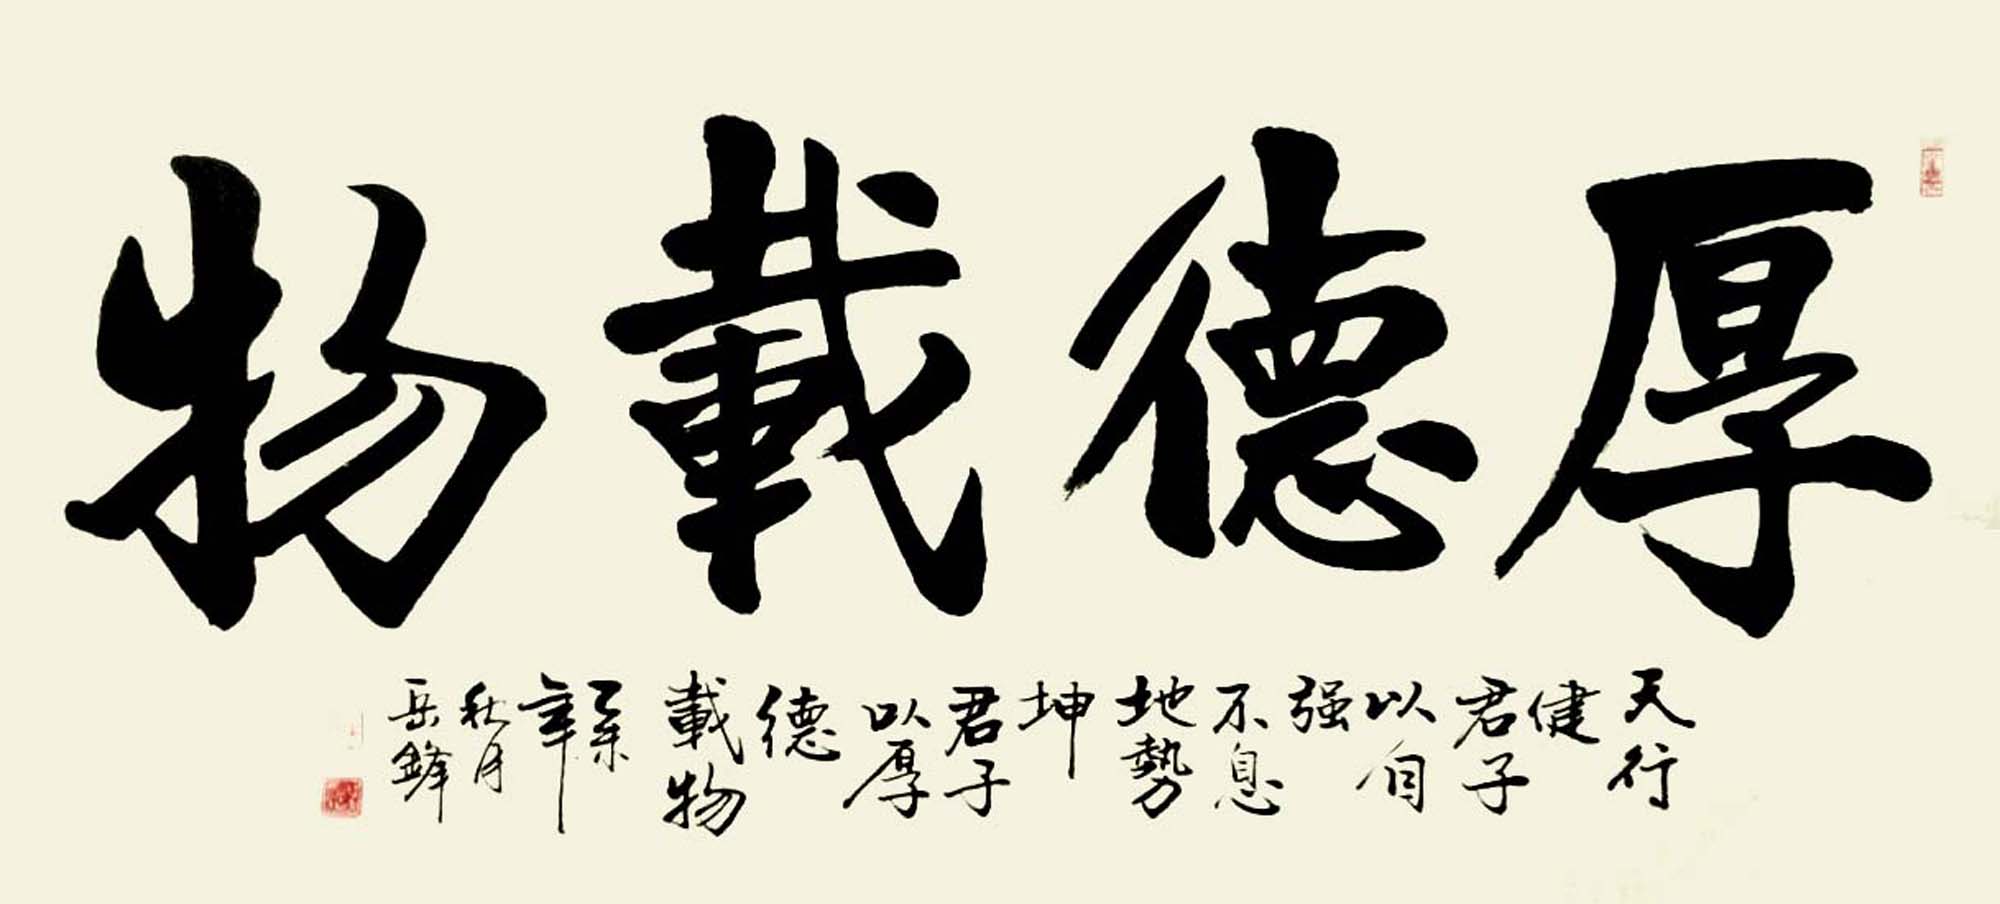 厚德載物
天行
健
君子
以自
强
不息
地勢
坤
君子
以厚
德
載物
乙未
年
秋月
岳鋒